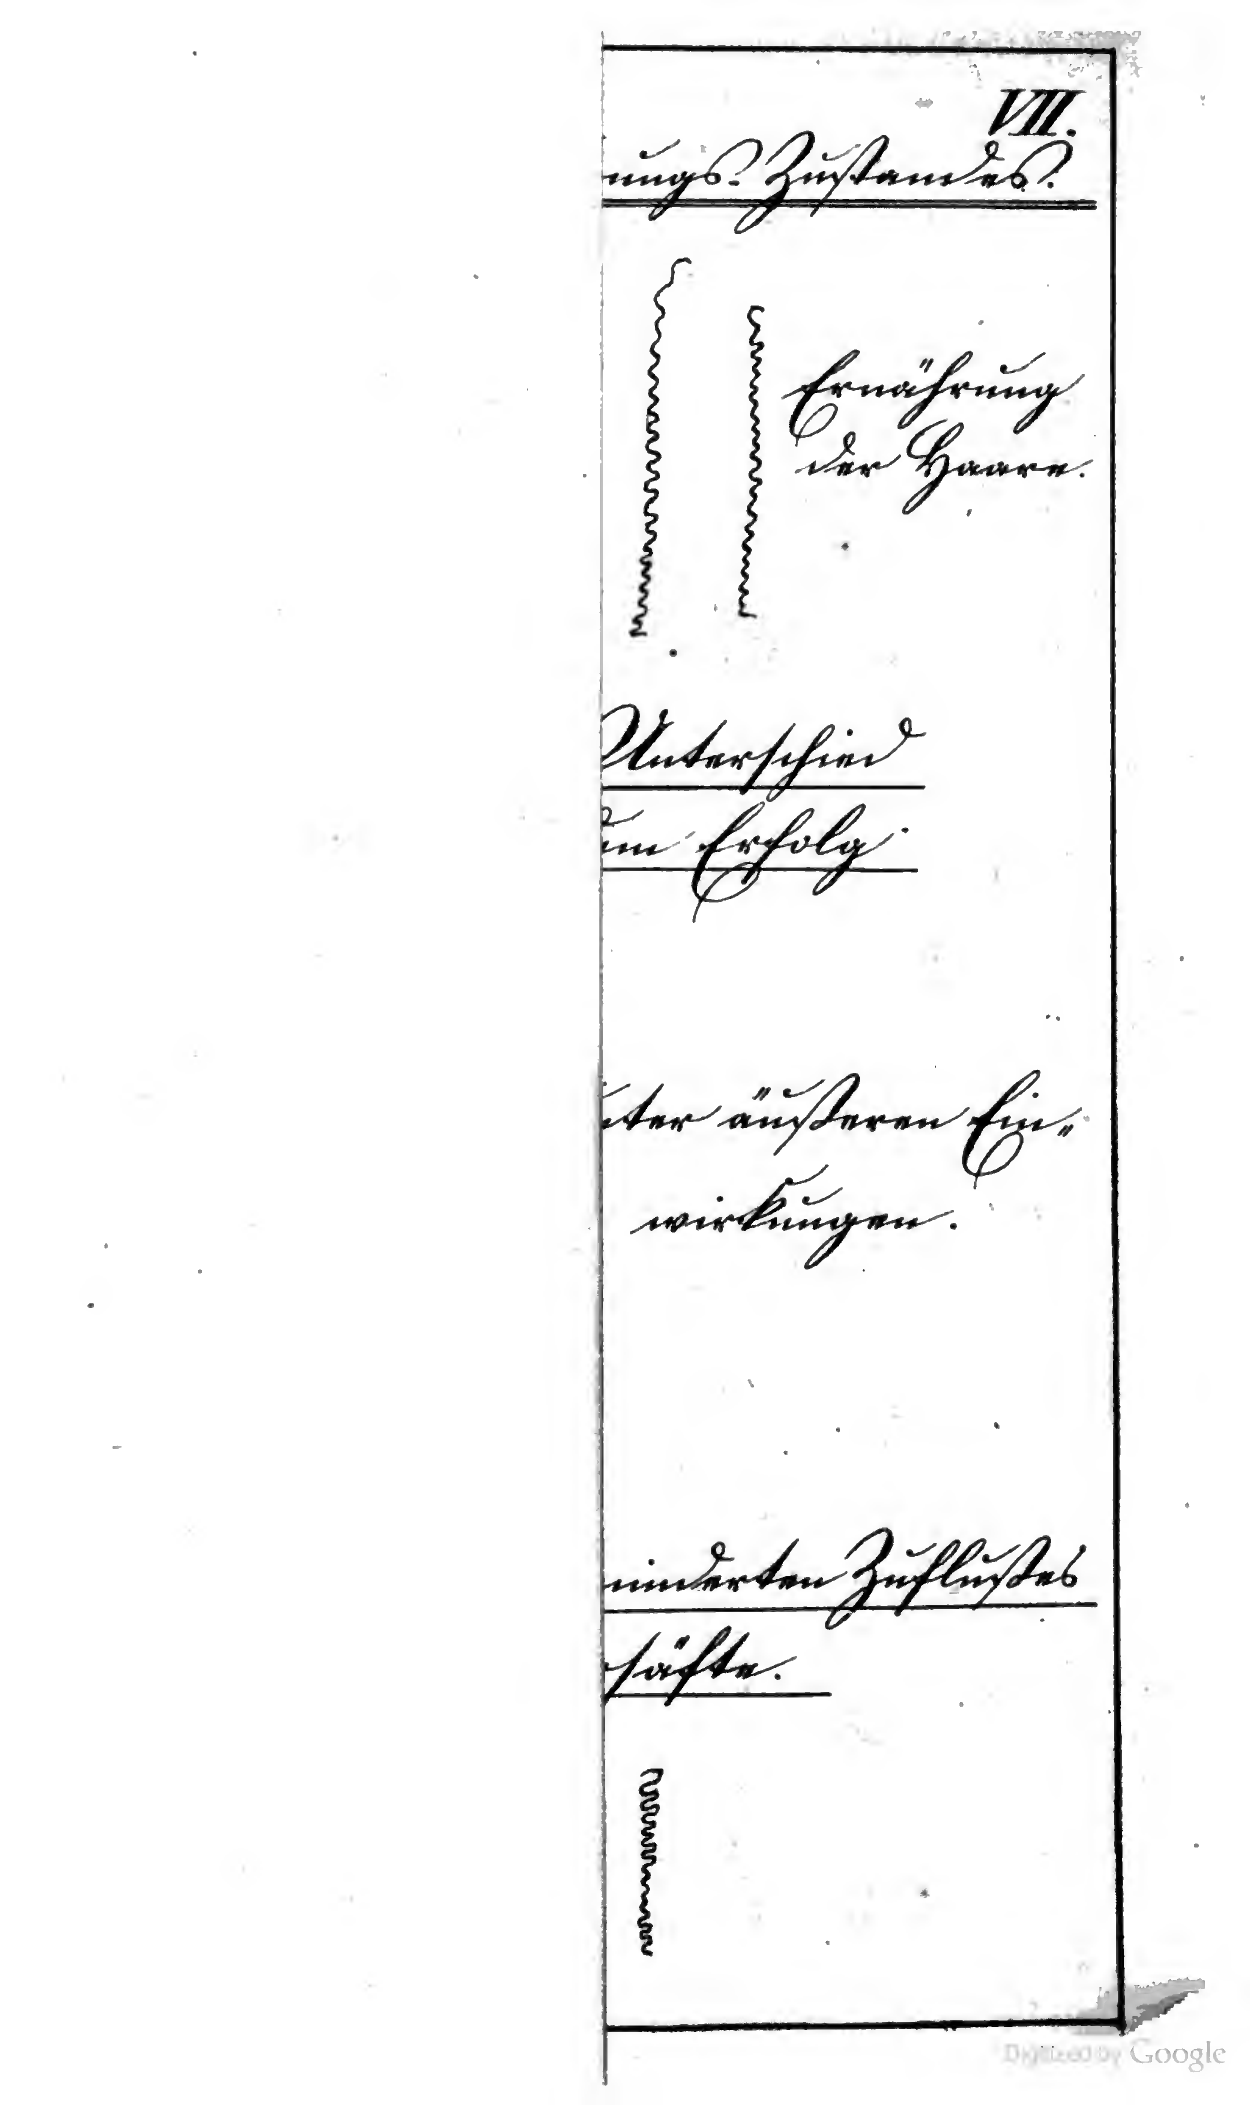 VII.
ungs-Zustandes.
Ernährung
der Haare.
Unterschied
um Erfolg
nter äußeren Ein„
wirkungen.
minderten Zuflußes
säfte.
Digitized by Google